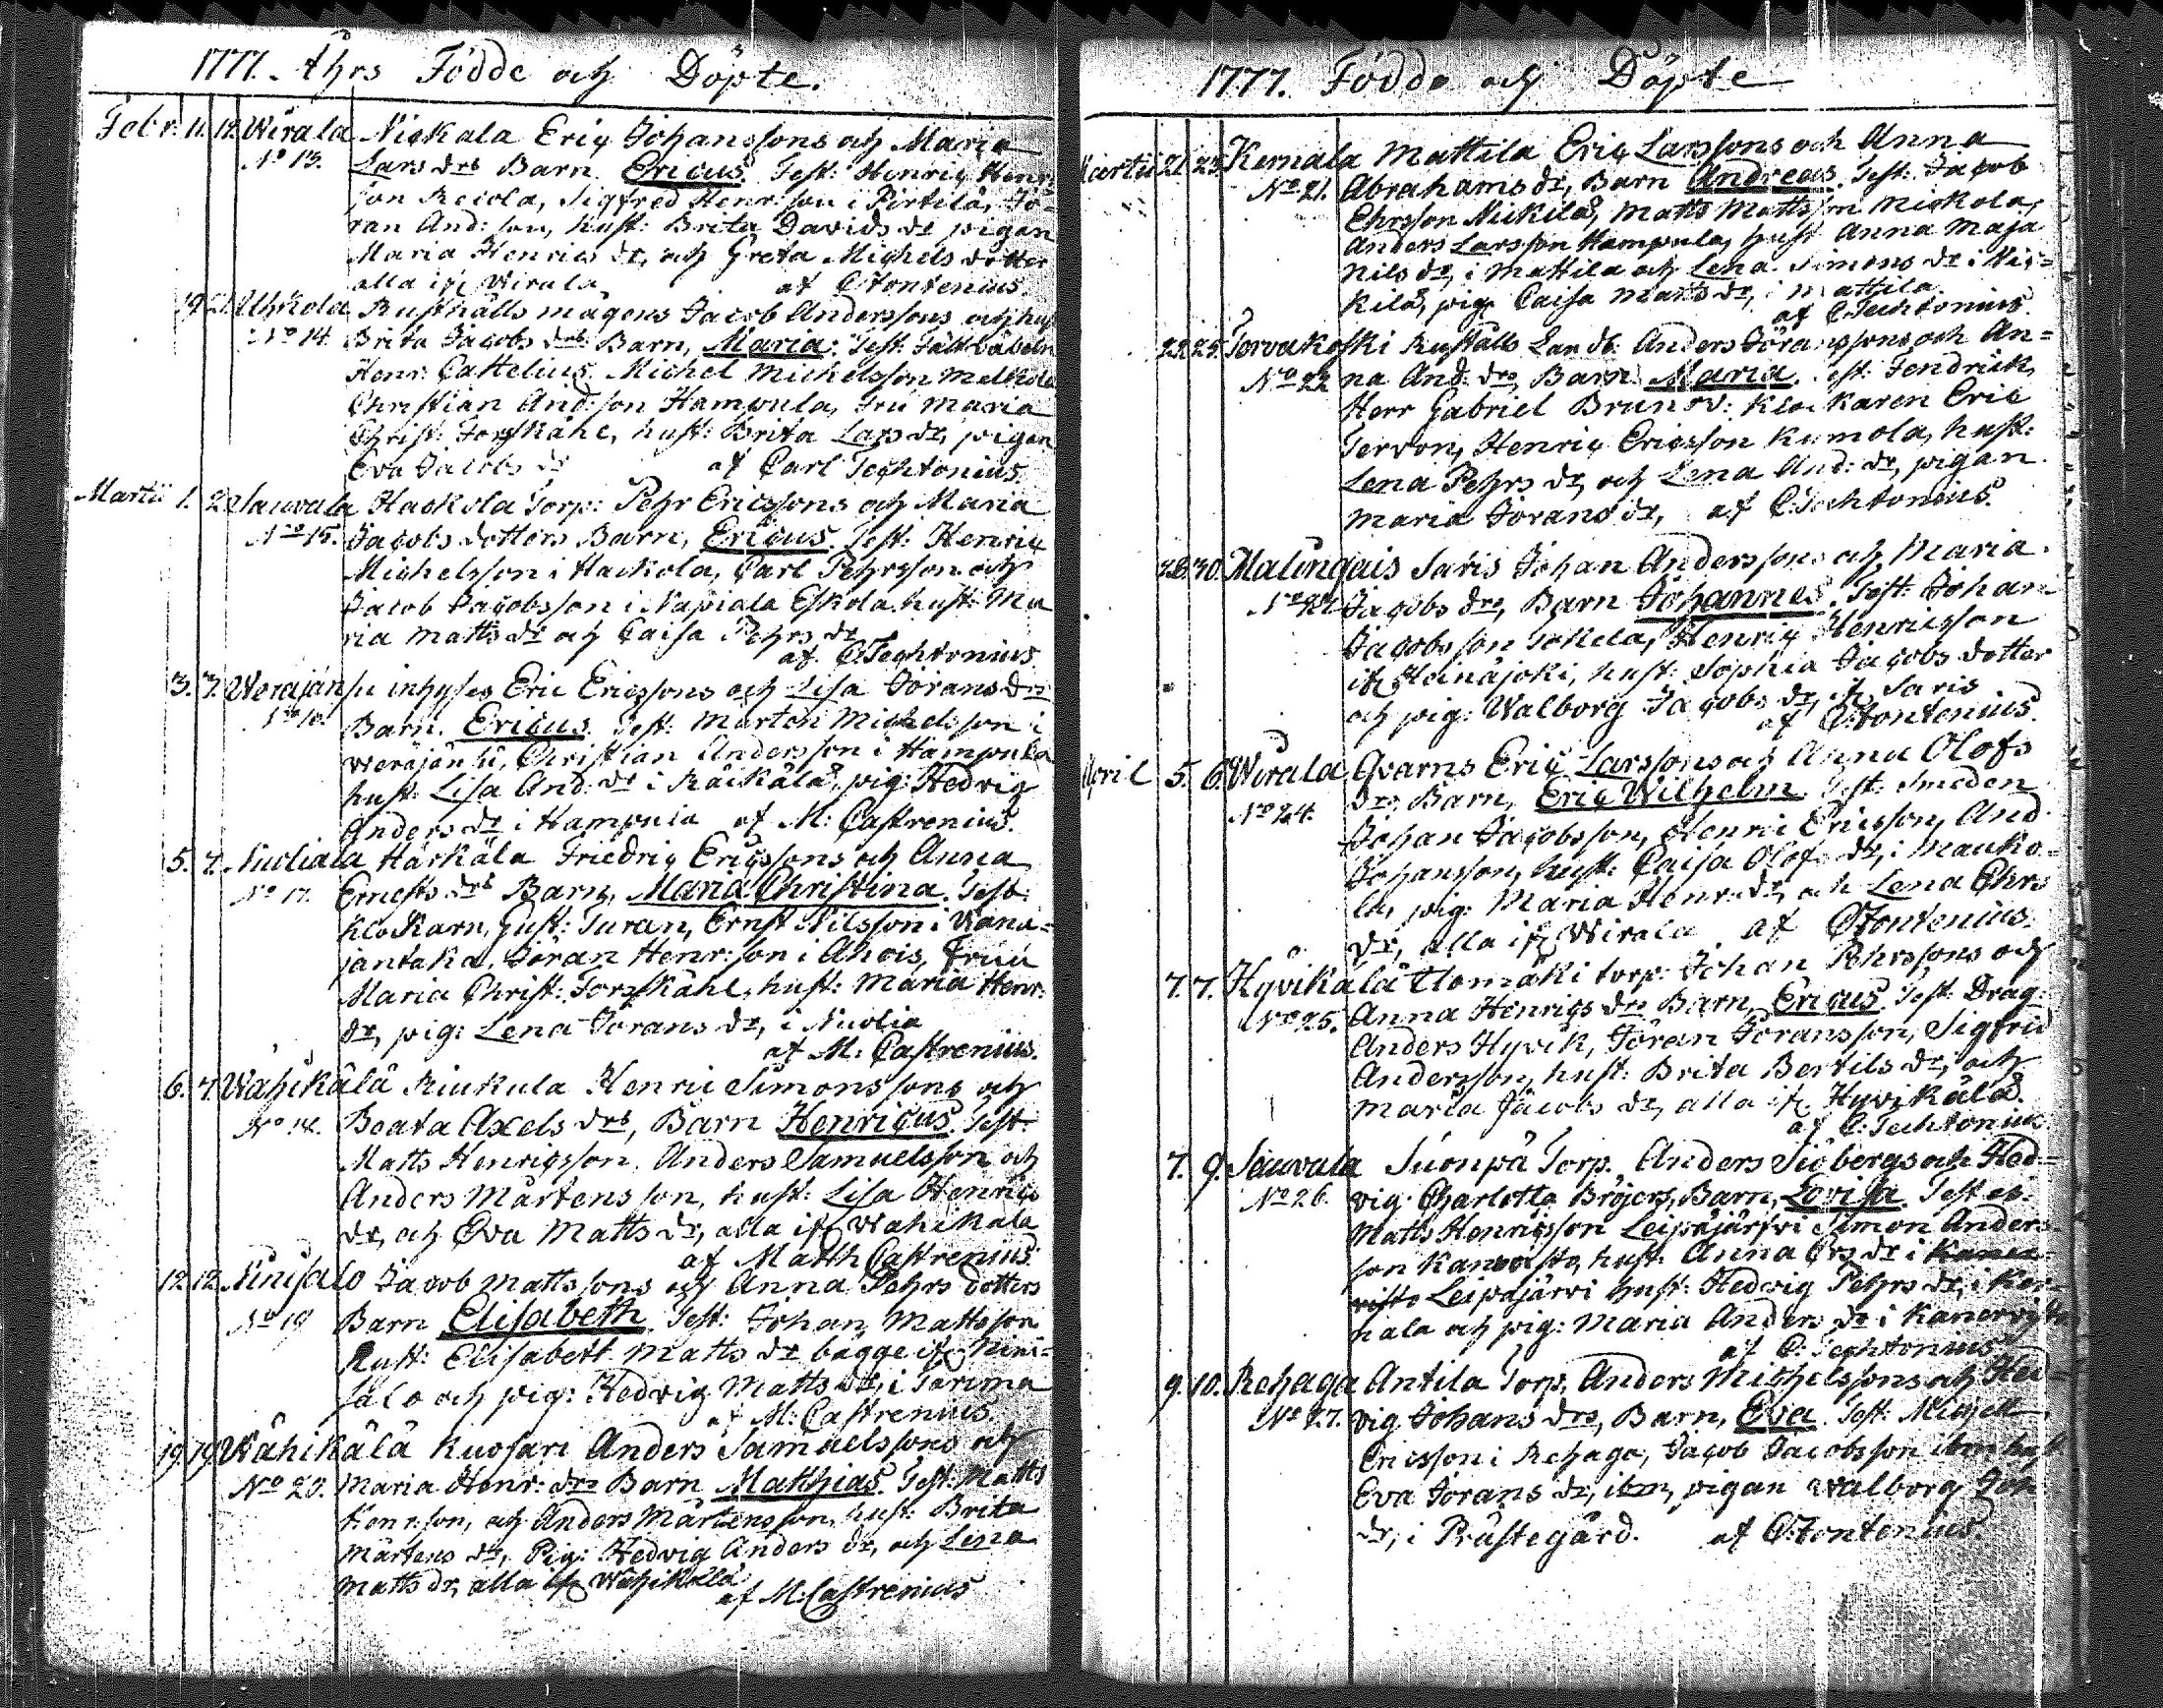 1777. Åhrs Födde och Döpte.
Febr: 11. 12. Wirala Nickala Eric Johanssons och Maria
No 13. Lars drs Barn. Ericus. Test: Henric Henr:
son Recola, Sigfred Henr:son i Pirtilä, Jö=
ran And:son, hust: Brita Davids dr pigan
Maria Henrics dr, och Greta Michels dotter
alla ifr Wirala af C Fontenius.
19. 21. Uhkola Rusthålls mågens Jacob Anderssons och hu
No 14. Brita Jacobs drs Barn, Maria. Test: Fältväbeln
Henr: Cattelius, Michel Michelsson Melkola
Christian And:son Hampula, Fru Maria
Christ: Forsskåhl, hust: Brita Lars dr, pigan
Eva Jacobs dr af Carl Techtonius.
Martii 1. 2. Sauvala Hackola Torp: Pehr Ericssons och Maria
No 15. Jacobs dotters Barn, Ericus. Test: Henric
Michelsson i Hackola, Carl Pehrsson och
Jacob Jacobsson i Napiala Eskola, hust: Ma
ria Matts dr och Caisa Pehrs dr
af C Techtonius.
3. 3. Weräjänsu inhyses Eric Ericssons och Lisa Jörans drs
No 16. Barn. Ericus. Test: Mårten Michelsson i
Weräjänsu, Christian Andersson i Hampula
hust: Lisa And: dr i Räikälä, pig: Hedvig
Anders dr i Hampula af M: Castrenius.
5. 7. Nuoliala Härkälä Friedric Ericssons och Anna
No 17. Ernsts drs Barn, Maria Christina. Test:
Klockarn, Gust: Turan, Ernst Nilsson i Vana=
jantaka, Jöran Henr:son i Ahois, Fruu
Maria Christ: Forsskåhl, hust: Maria Henr:
dr, pig: Lena Jörans dr, i Nuolia
af M: Castrenius.
6. 7. Wähikälä Riukula Henric Simonssons och
No 18. Beata Axels drs, Barn Henricus. Test:
Matts Henricsson, Anders Samuelsson och
Anders Mårtensson, hust: Lisa Henrics
dr, och Eva Matts dr, alla ifr Wähikälä
af Matth Castrenius.
12. 12. Ninisalo Jacob Mattssons och Anna Pehrs dotters
No 19 Barn Elisabeth. Test: Johan Mattsson
Rutt: Elisabett Matts dr bägge ifr Nini=
salo och pig: Hedvig Matts dr, i Tarima
af M: Castrenius.
19. 19. Wähikälä Kuosari Anders Samuelssons och
No 20. Maria Henr: drs Barn Mathias. Test: Matts
Henr:son, och Anders Mårtensson, hust: Brita
Mårtens dr, Pig: Hedvig Anders dr, och Lena
Matts dr, alla ifr Wähikälä
af M: Castrenius
1777. Födde och Döpte
Martii 21. 23. Kernala Mattila Eric Larssons och Anna
No 21. Abrahams dr, Barn Andreas. Test: Jacob
Ehrsson Nickilä, Matts Mattsson Nickola,
Anders Larsson Hampula, hust Anna Maja
Nils dr, i Mattila och Lena Simons dr i Nic=
kilä, pig. Caisa Matts dr, i Mattila
af C Techtonius.
23. 25. Torvakoski Rustålls Land: Anders Jöranssons och An=
No 22 na And: drs, Barn. Maria. Test: Fendrick,
Herr Gabriel Brunov: Klockaren Eric
Tervon, Henric Ericsson Kumola, hust:
Lena Pehrs dr, och Lena And: dr, pigan
Maria Jörans dr, af C Techtonius.
28. 30. Malingais Saris Johan Anderssons och Maria
Jacobs drs, Barn Johannes. Test: Johan
Jacobsson Tokela, Henric Henricsson
ifr Heinäjoki, hust: Sophia Jacobs dotter
och pig: Walborg Jacobs dr, ifr Saris
af C Fontenius.
April 5. 6. Wirala Qvarns Eric Larssons och Anna Olofs
No 24. drs, Barn, Eric Wilhelm. Test: Smeden
Johan Jacobsson, Henric Ericsson, And
Johansson, hust: Caisa Olofs dr, i Mauko=
la, pig: Maria Henr: dr, och Lena Ehrs
dr, alla ifr Wirala af C Fontenius.
7. 7. Hyvikälä Ulomäki torp: Johan Pehrssons och
No 25. Anna Henrics drs Barn, Ericus. Test: Drag:
Anders Hyvik, Jöran Göransson, Sigfrid
Andersson, hust: Brita Bertils dr, och
Maria Jacobs dr, alla ifr Hyvikälä.
af C: Techtonius
7. 9. Sauvala Suonpä Torp. Anders Siöbergs och Hed=
No 26. vig Charlotta Bröjers, Barn, Lovisa. Test es.
Matts Henricsson Leipäjärfvi Simon Anders=
son Kanervisto, hust: Anna Ers dr i Kaner
visto Leipäjärvi hust: Hedvig Pehrs dr, i Ker=
nala och pig: Maria Anders dr i Kanervisto
af C: Techtonius
9. 10. Rehaga Antila Torp, Anders Michelssons och Hed=
No 27. vig Johans drs, Barn, Eva. Test: Michell
Ericsson i Rehaga, Jacob Jacobsson ibm hust
Eva Jörans dr, ibm, pigan Walborg Joh
dr, i Prästegård. af C: Fontenius.